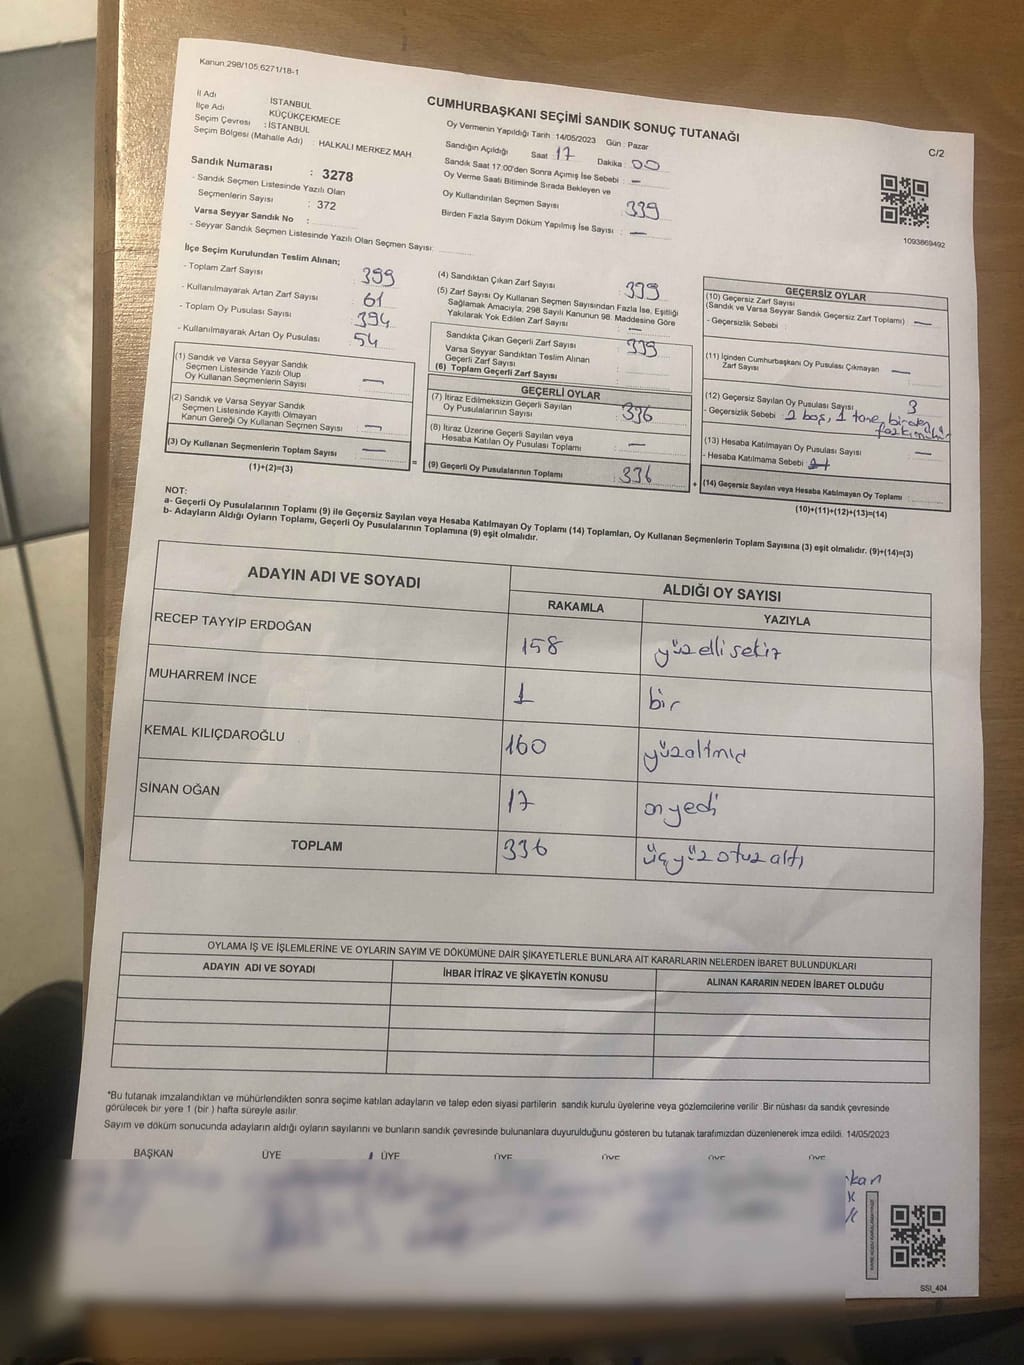 Kanun:298/105,6271/18-1
CUMHURBAŞKANI SEÇİMİ SANDIK SONUÇ TUTANAĞI
C/2
İl Adı İSTANBUL
İlçe Adı KÜÇÜKÇEKMECE
Seçim Çevresi : İSTANBUL
Seçim Bölgesi (Mahalle Adı) : HALKALI MERKEZ MAH
Sandık Numarası : 3278
- Sandık Seçmen Listesinde Yazılı Olan
Seçmenlerin Sayısı : 372
Varsa Seyyar Sandık No :
- Seyyar Sandık Seçmen Listesinde Yazılı Olan Seçmen Sayısı:
Oy Vermenin Yapıldığı Tarih : 14/05/2023 Gün : Pazar
Sandığın Açıldığı Saat 17 Dakika : 00
Sandık Saat 17:00'den Sonra Açımış İse Sebebi : —
Oy Verme Saati Bitiminde Sırada Bekleyen ve
Oy Kullandırılan Seçmen Sayısı : 339
Birden Fazla Sayım Döküm Yapılmış İse Sayısı : —
1093869492
İlçe Seçim Kurulundan Teslim Alınan;
- Toplam Zarf Sayısı : 399
- Kullanılmayarak Artan Zarf Sayısı : 61
- Toplam Oy Pusulası Sayısı : 394
- Kullanılmayarak Artan Oy Pusulası : 54
(1) Sandık ve Varsa Seyyar Sandık
Seçmen Listesinde Yazılı Olup
Oy Kullanan Seçmenlerin Sayısı : —
(2) Sandık ve Varsa Seyyar Sandık
Seçmen Listesinde Kayıtlı Olmayan
Kanun Gereği Oy Kullanan Seçmen Sayısı : —
(3) Oy Kullanan Seçmenlerin Toplam Sayısı : —
(1)+(2)=(3)
(4) Sandıktan Çıkan Zarf Sayısı : 339
(5) Zarf Sayısı Oy Kullanan Seçmen Sayısından Fazla İse, Eşitliği
Sağlamak Amacıyla, 298 Sayılı Kanunun 98. Maddesine Göre
Yakılarak Yok Edilen Zarf Sayısı : —
Sandıkta Çıkan Geçerli Zarf Sayısı : 339
Varsa Seyyar Sandıktan Teslim Alınan
Geçerli Zarf Sayısı :
(6) Toplam Geçerli Zarf Sayısı :
GEÇERLİ OYLAR
(7) İtiraz Edilmeksizin Geçerli Sayılan
Oy Pusulalarının Sayısı : 336
(8) İtiraz Üzerine Geçerli Sayılan veya
Hesaba Katılan Oy Pusulası Toplamı : —
= (9) Geçerli Oy Pusulalarının Toplamı : 336
GEÇERSİZ OYLAR
(10) Geçersiz Zarf Sayısı
(Sandık ve Varsa Seyyar Sandık Geçersiz Zarf Toplamı) : —
- Geçersizlik Sebebi :
(11) İçinden Cumhurbaşkanı Oy Pusulası Çıkmayan
Zarf Sayısı : —
(12) Geçersiz Sayılan Oy Pusulası Sayısı : 3
- Geçersizlik Sebebi : 2 boş, 1 tane birden
(13) Hesaba Katılmayan Oy Pusulası Sayısı : —
- Hesaba Katılmama Sebebi :
+ (14) Geçersiz Sayılan veya Hesaba Katılmayan Oy Toplamı :
(10)+(11)+(12)+(13)=(14)
NOT:
a- Geçerli Oy Pusulalarının Toplamı (9) ile Geçersiz Sayılan veya Hesaba Katılmayan Oy Toplamı (14) Toplamları, Oy Kullanan Seçmenlerin Toplam Sayısına (3) eşit olmalıdır. (9)+(14)=(3)
b- Adayların Aldığı Oyların Toplamı, Geçerli Oy Pusulalarının Toplamına (9) eşit olmalıdır.
ADAYIN ADI VE SOYADI ALDIĞI OY SAYISI
RAKAMLA YAZIYLA
RECEP TAYYİP ERDOĞAN 158 yüzellisekiz
MUHARREM İNCE 1 bir
KEMAL KILIÇDAROĞLU 160 yüzaltmış
SİNAN OĞAN 17 onyedi
TOPLAM 336 üçyüzotuzaltı
OYLAMA İŞ VE İŞLEMLERİNE VE OYLARIN SAYIM VE DÖKÜMÜNE DAİR ŞİKAYETLERLE BUNLARA AİT KARARLARIN NELERDEN İBARET BULUNDUKLARI
ADAYIN ADI VE SOYADI İHBAR İTİRAZ VE ŞİKAYETİN KONUSU ALINAN KARARIN NEDEN İBARET OLDUĞU
*Bu tutanak imzalandıktan ve mühürlendikten sonra seçime katılan adayların ve talep eden siyasi partilerin sandık kurulu üyelerine veya gözlemcilerine verilir. Bir nüshası da sandık çevresinde
görülecek bir yere 1 (bir ) hafta süreyle asılır.
Sayım ve döküm sonucunda adayların aldığı oyların sayılarını ve bunların sandık çevresinde bulunanlara duyurulduğunu gösteren bu tutanak tarafımızdan düzenlenerek imza edildi. 14/05/2023
BAŞKAN ÜYE ÜYE ÜYE ÜYE ÜYE ÜYE
SSI_404